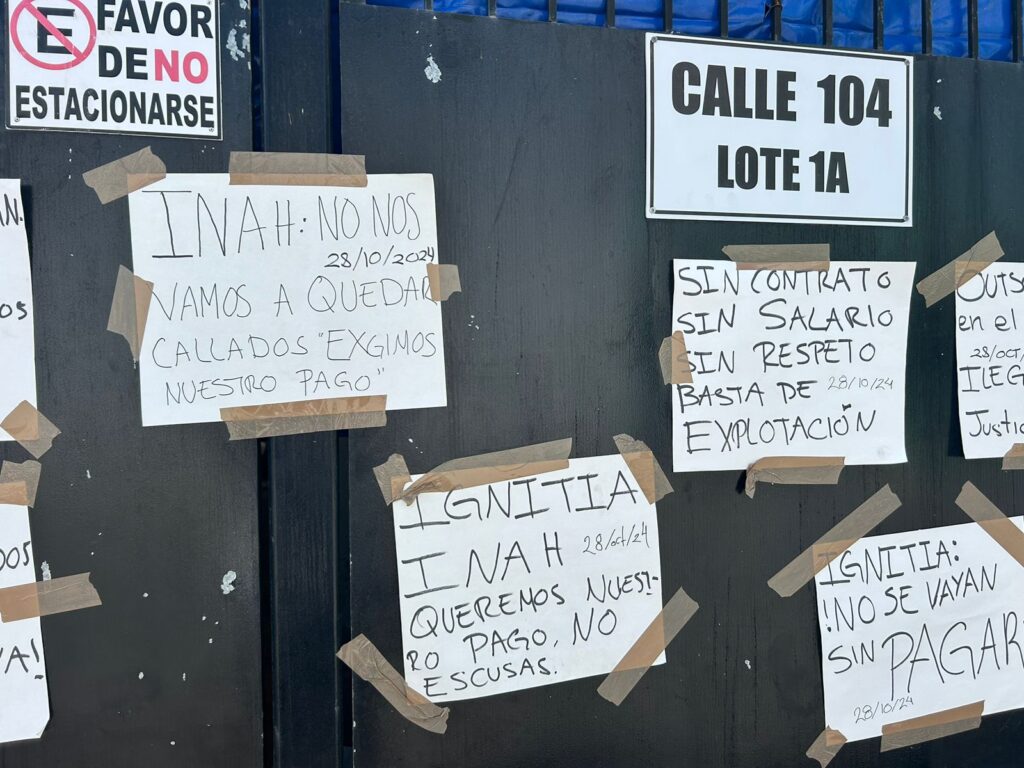 E FAVOR
DE NO
ESTACIONARSE
CALLE 104
LOTE 1A
INAH: NO NOS
28/10/2024
VAMOS A QUEDAR
CALLADOS "EXGIMOS
NUESTRO PAGO"
SIN CONTRATO
SIN SALARIO
SIN RESPETO
BASTA DE 28/10/24
EXPLOTACIÓN
en el
28/OCT/
IGNITIA
INAH 28/oct/24
QUEREMOS NUEST-
RO PAGO, NO
ESCUSAS.
IGNITIA:
!NO SE VAYAN
SIN PAGAR
28/10/24